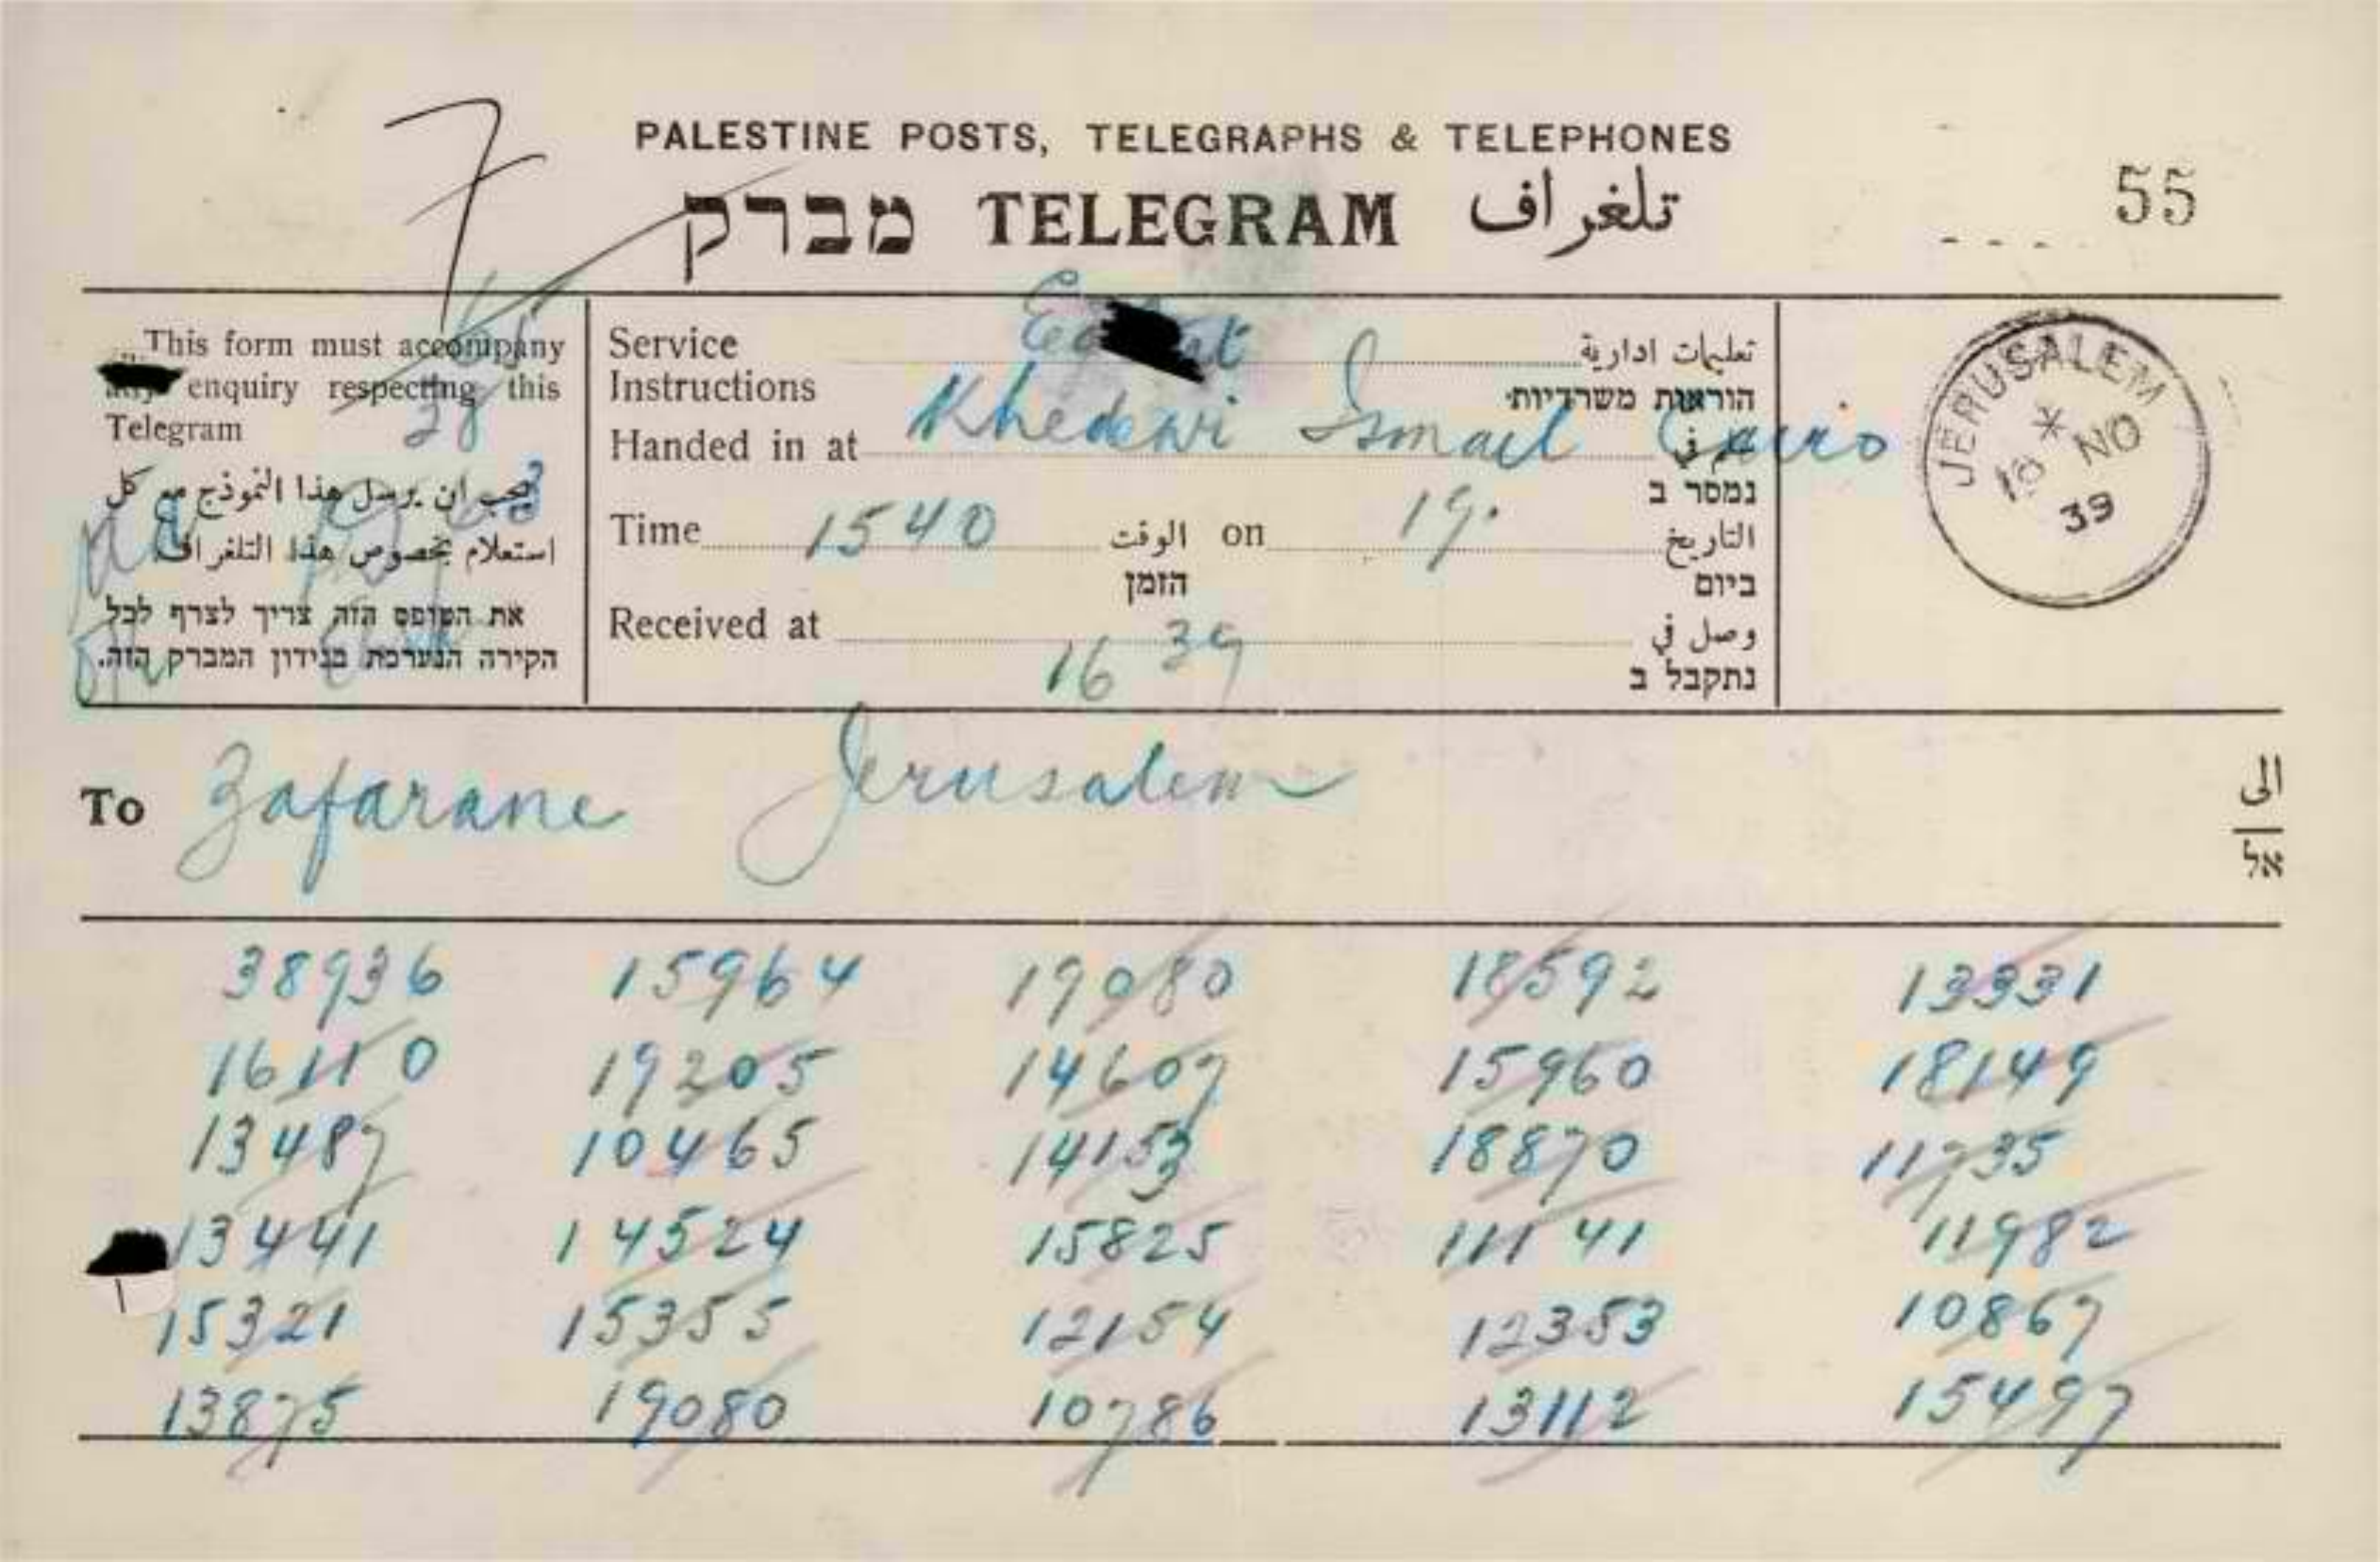 7
PALESTINE POSTS, TELEGRAPHS & TELEPHONES
מברק TELEGRAM تلغراف
55
This form must accompany
any enquiry respecting this
Telegram
65
28
يجب ان يرسل هذا النموذج مع كل
استعلام بخصوص هذا التلغراف
את הטופס הזה צריך לצרף לכל
הקירה הנערכת בנידון המברק הזה.
Service Instructions تعليمات ادارية
הוראות משרדיות
Handed in at Khedewi Ismail Cairo في
נמסר ב
Time 1540 الوقت on 19. التاريخ
הזמן ביום
Received at 16 39 وصل في
נתקבל ב
JERUSALEM
NO
39
To Zafarane Jerusalem الى
אל
38936 15964 19080 18592 13331
16110 19205 14607 15960 18149
13487 10465 14153 18870 11735
13441 14524 15825 11141 11982
15321 15355 12154 12353 10867
13875 19080 10786 13112 15497